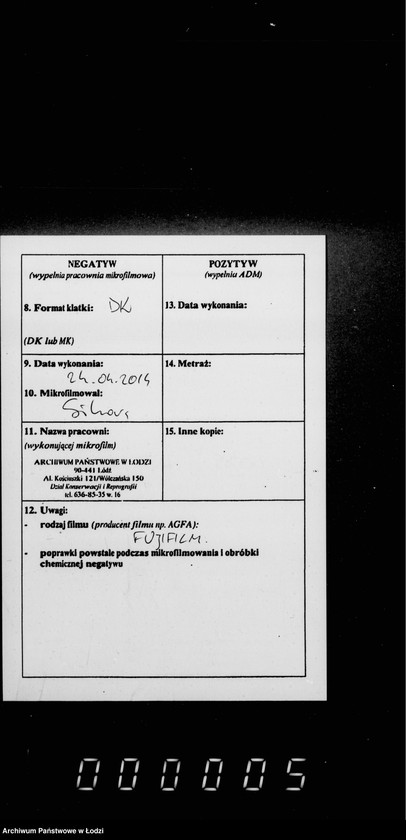 NEGATYW
(wypełnia pracownia mikrofilmowa)
POZYTYW
(wypełnia ADM)
8. Format klatki: DK
(DK lub MK)
13. Data wykonania:
9. Data wykonania:
24.04.2014
10. Mikrofilmował:
14. Metraż:
11. Nazwa pracowni:
(wykonującej mikrofilm)
ARCHIWUM PAŃSTWOWE W ŁODZI
90-441 Łódź
Al. Kościuszki 121/Wólczańska 150
Dział Konserwacji i Reprografii
tel. 636-85-35 w. 16
15. Inne kopie:
12. Uwagi:
- rodzaj filmu (producent filmu np. AGFA):
FUJIFILM.
- poprawki powstałe podczas mikrofilmowania i obróbki
chemicznej negatywu
000005
Archiwum Państwowe w Łodzi